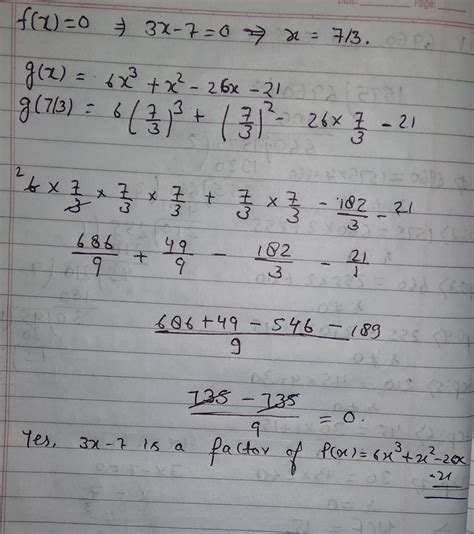 f(x)=0 ⇒ 3x-7=0 ⇒ x = 7/3.
g(x) = 6x³ + x² - 26x - 21
g(7/3) = 6(7/3)³ + (7/3)² - 26 × 7/3 - 21
²6 × 7/3 × 7/3 × 7/3 + 7/3 × 7/3 - 182/3 - 21
686/9 + 49/9 - 182/3 - 21/1
686+49-546-189/9
735-735/9 = 0.
Yes, 3x-7 is a factor of f(x)=6x³+x²-26x
-21